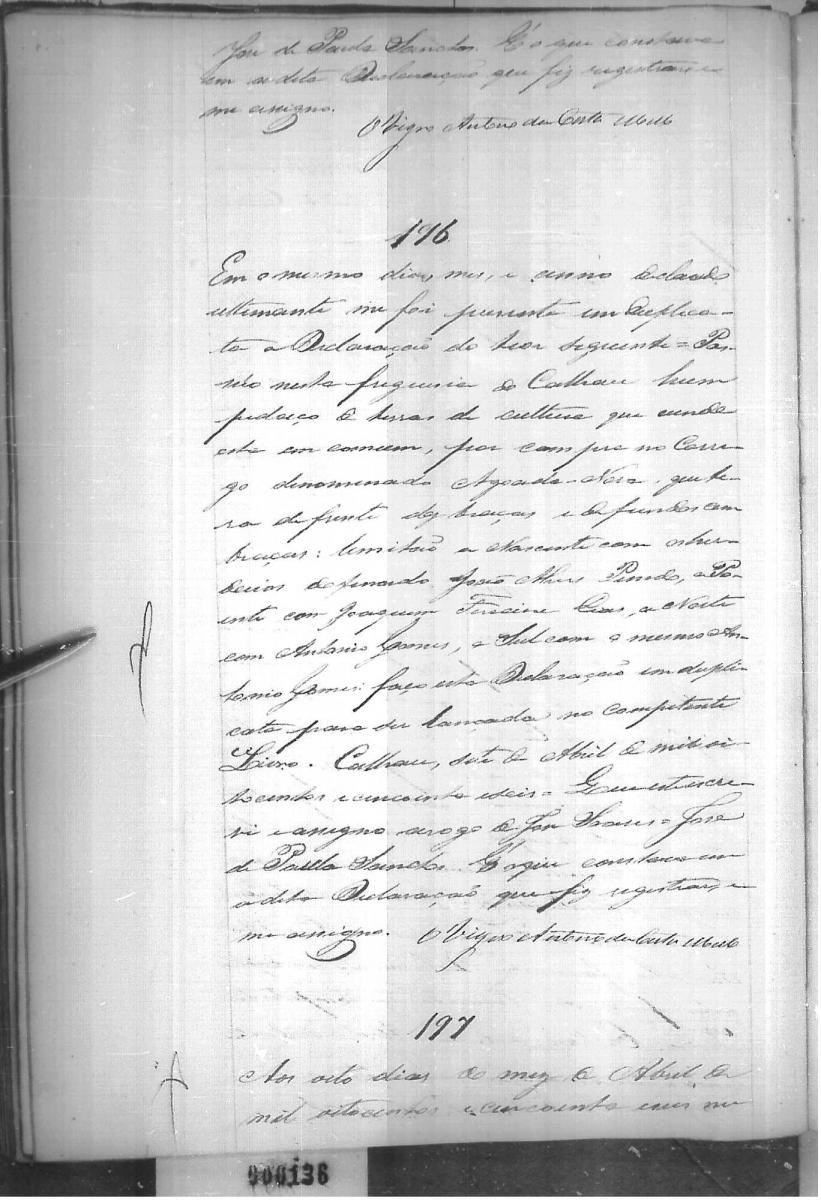 José de Paula Sanctos. É o que constava
em a dita Declaração que fiz registrar, e
me assigno.
O Vigro Antonio da Costa Mello
196
Em o mesmo dia, mes, e anno declarado
ultimamente me foi presente em duplica-
ta a Declaração do teor seguinte = Pos-
súo nesta freguesia do Calhau hum
pedaço de terras de cultura que ainda
está em comum, por compra no Corre-
go denominado Agoada Nova, que te-
rá de frente dez braças e de fundos cem
braças: limitão a Nascente com os her-
deiros do finado João Alves Pinto, a Po-
ente com Joaquim Ferreira Dias, a Norte
com Antonio Gomes, a Sul com o mesmo An-
tonio Gomes: faço esta Declaração em dupli-
cata para ser lançada no competente
Livro. Calhau, sete de Abril de mil oi-
tocentos e cincoenta e seis = Que este escre-
vi e assigno a rogo de José Soares = José
de Paula Sanctos. É o que constava em
a dita Declaração que fiz registrar, e
me assigno.
O Vigro Antonio da Costa Mello
197
Aos oito dias do mez de Abril de
mil oitocentos e cincoenta e seis me
000136